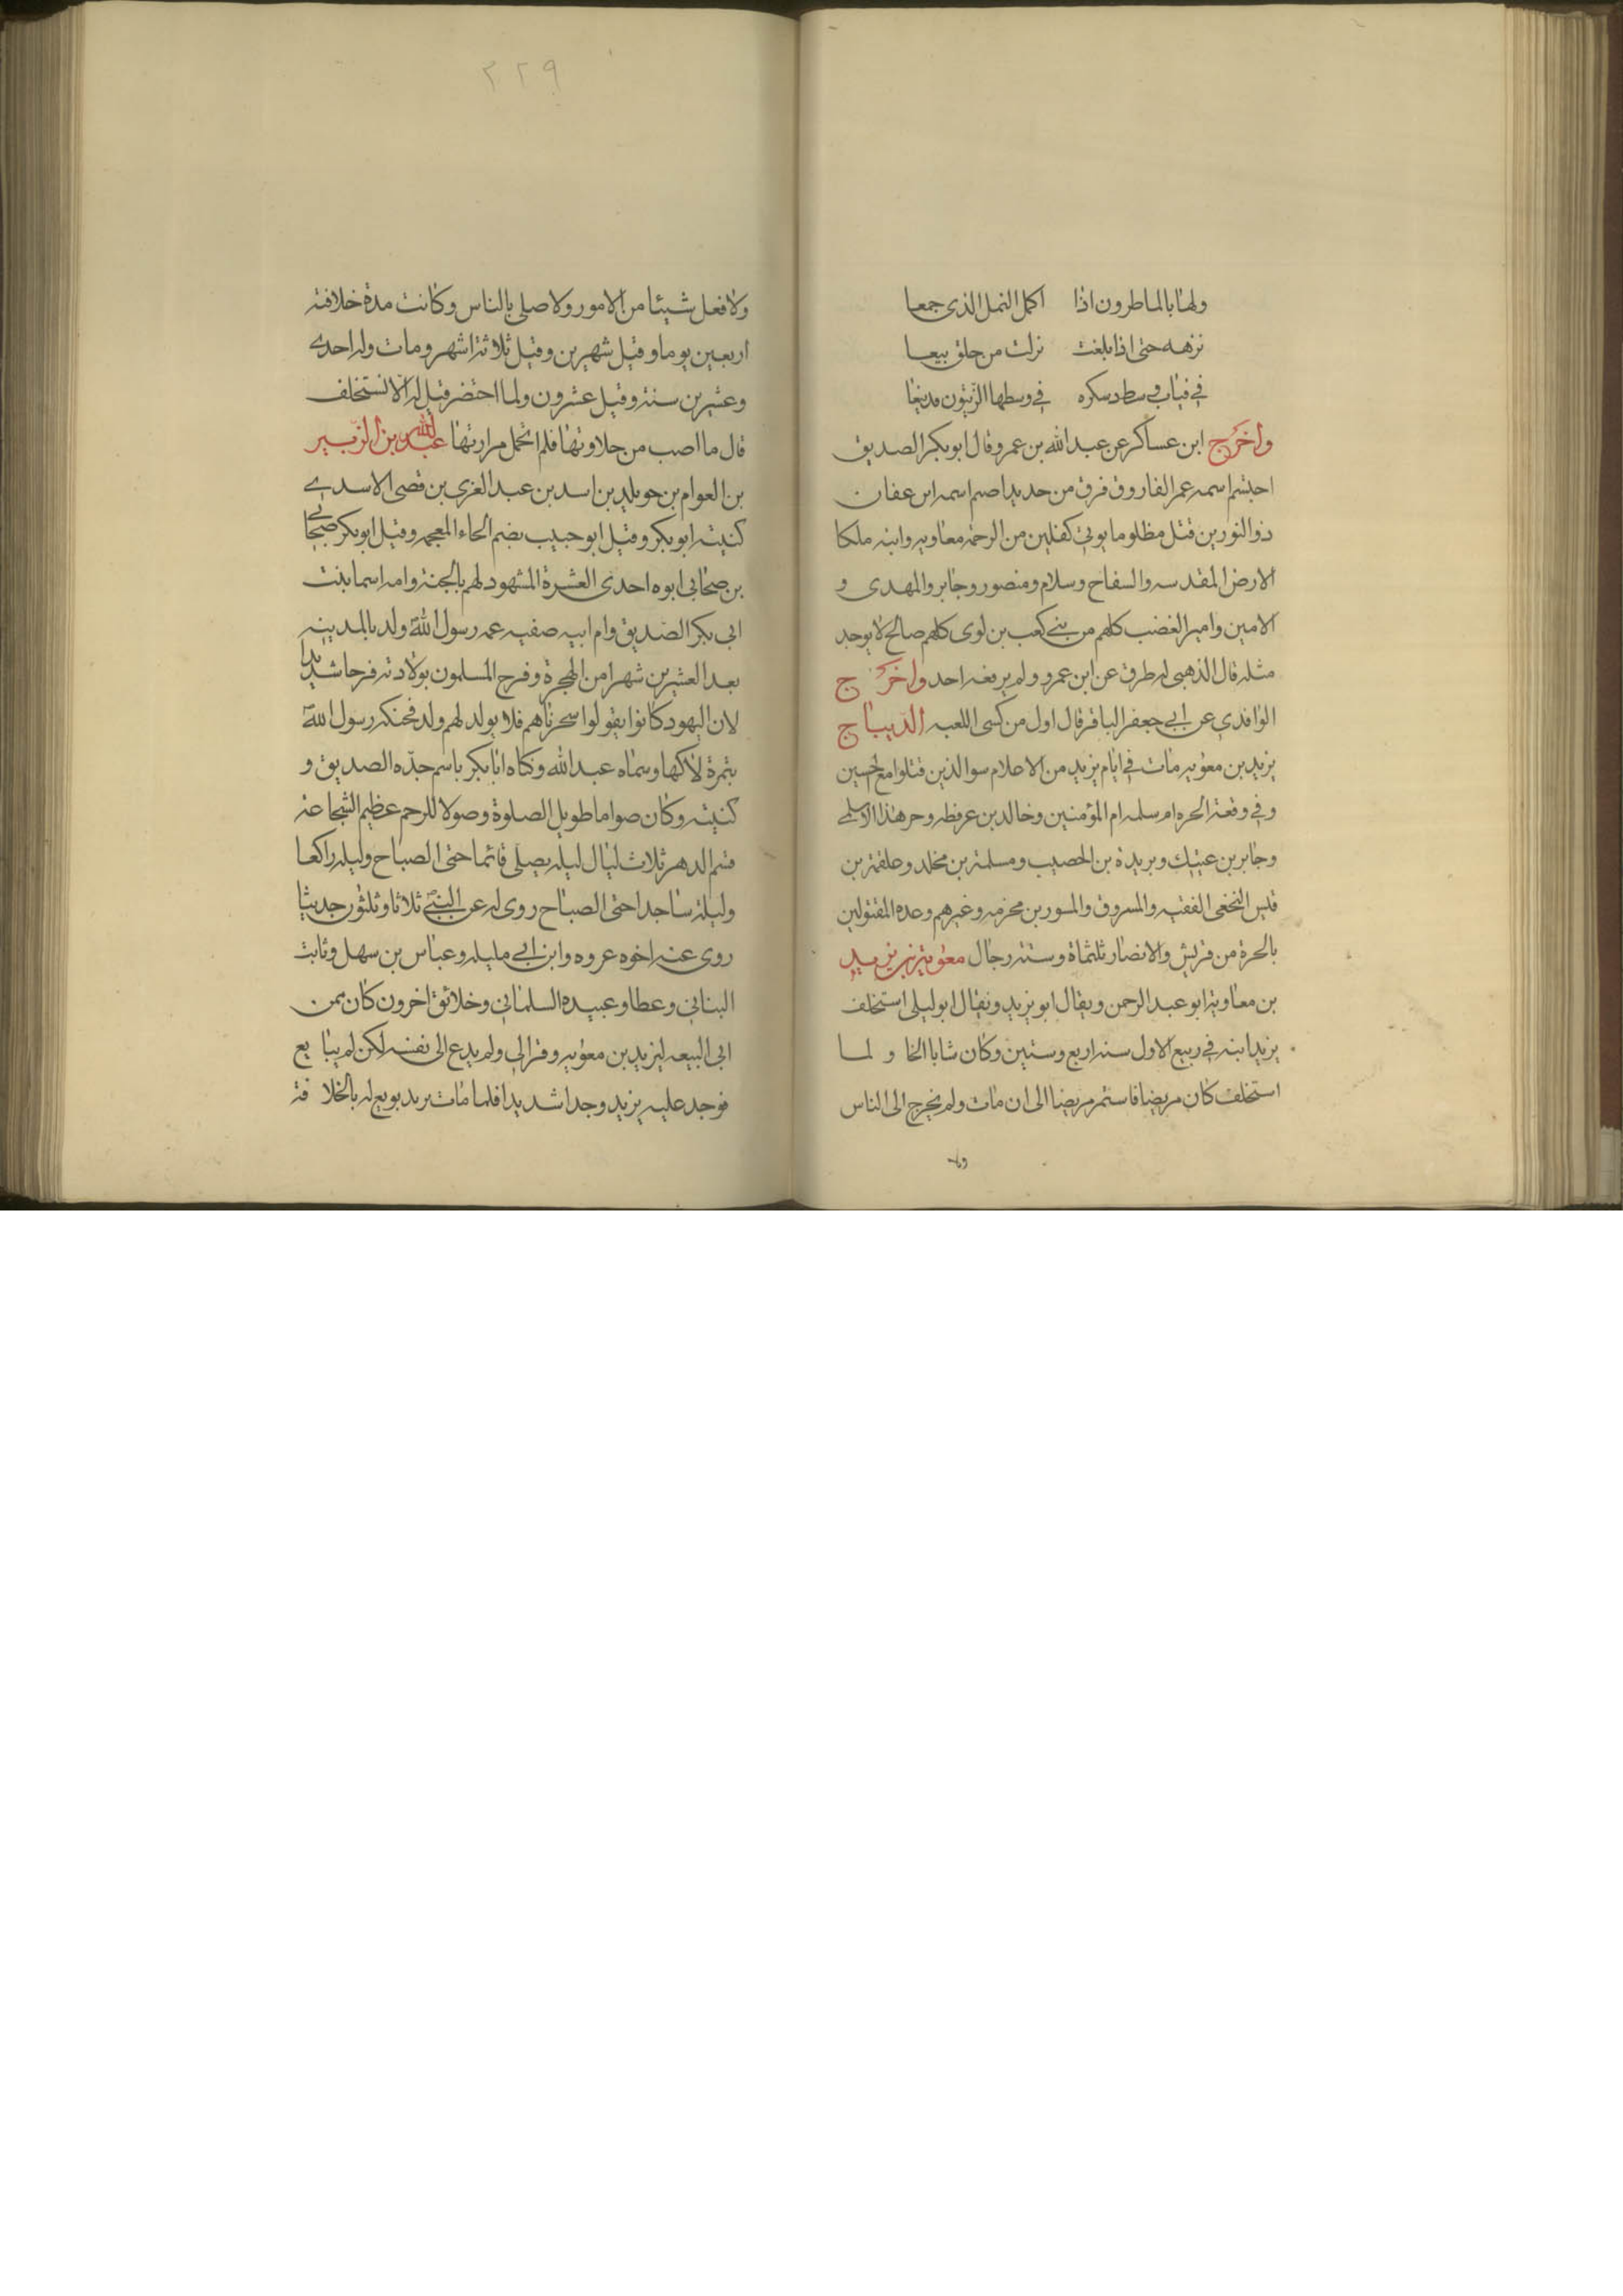 ولها بالماطرون اذا اكل النمل الذى جمعا
نزهه حتى اذا بلغت نزلت من جلق بيعا
في قباب وسط دسكره في وسطها الزيتون قدينعا
واخرج ابن عساكر عن عبد الله بن عمرو قال ابو بكر الصديق
احبتم اسمه عمر الفاروق فرق من حديد اصم اسمه ابن عفان
ذو النورين قتل مظلوما يوتي كفلين من الرحمة معاويه وابنه ملكا
الارض المقدسه والسفاح وسلام ومنصور وجابر والمهدى و
الامين وامير الغضب كلهم من بني كعب بن لوى كلهم صالح لا يوجد
مثله قال الذهبى له طرق عن ابن عمرو ولم يرفعه احد واخرج
الواقدي عن ابي جعفر الباقر قال اول من كسى اللعبه الديباج
يزيد بن معويه مات في ايام يزيد من الاعلام سوا الذين قتلوا مع الحسين
وفي وقعة الحره ام سلمه ام المؤمنين وخالد بن عرفطه وجرهذا الاسلمى
وجابر بن عتيك وبريدة بن الحصيب ومسلمة بن مخلد وعلقمة بن
قيس النخعى الفقيه والمسروق والمسور بن مخرمه وغيرهم وعده المقتولين
بالحرة من قريش والانصار ثلثماة وستة رجال معوية بن يزيد
بن معاوية ابو عبد الرحمن ويقال ابو يزيد ويقال ابو ليلى استخلف
يزيد ابنه في ربيع الاول سنه اربع وستين وكان شابا الخا و لما
استخلف كان مريضا فاستمر مريضا الى ان مات ولم يخرج الى الناس
ولا
٢٢٩
ولا فعل شيئا من الامور ولا صلى بالناس وكانت مدة خلافته
اربعين يوما وقيل شهرين وقيل ثلاثة اشهر ومات وله احدى
وعشرين سنة وقيل عشرون ولما احتضر قيل له الا تستخلف
قال ما اصب من حلاوتها فلم اتحمل مرارتها عبد الله بن الزبير
بن العوام بن خويلد بن اسد بن عبد العزى بن قصى الاسدي
كنيته ابو بكر وقيل ابو حبيب بضم الحاء المعجمه وقيل ابو بكر صحابي
بن صحابي ابوه احدى العشرة المشهود لهم بالجنة وامه اسما بنت
ابى بكر الصديق وام ابيه صفيه عمه رسول الله ولد بالمدينه
بعد العشرين شهرا من الهجرة وفرح المسلمون بولادته فرحا شديدا
لان اليهود كانوا يقولوا سحرناهم فلا يولد لهم ولد فحنكه رسول الله
بتمرة لاكها وسماه عبد الله وكناه ابا بكر باسم جده الصديق و
كنيته وكان صواما طويل الصلوة وصولا للرحم عظيم الشجاعة
قسم الدهر ثلاث ليال ليله يصلى قائما حتى الصباح وليله راكعا
وليلة ساجدا حتى الصباح روى له عن النبي ثلاثا وثلثون حديثا
روى عنه اخوه عروه وابن ابي مليله وعباس بن سهل وثابت
البناني وعطا وعبيده السلماني وخلائق اخرون كان ممن
ابى البيعه ليزيد بن معويه وفر الى ولم يدع الى نفسه لكن لم يبايع
فوجد عليه يزيد وجدا شديدا فلما مات يزيد بويع له بالخلافة